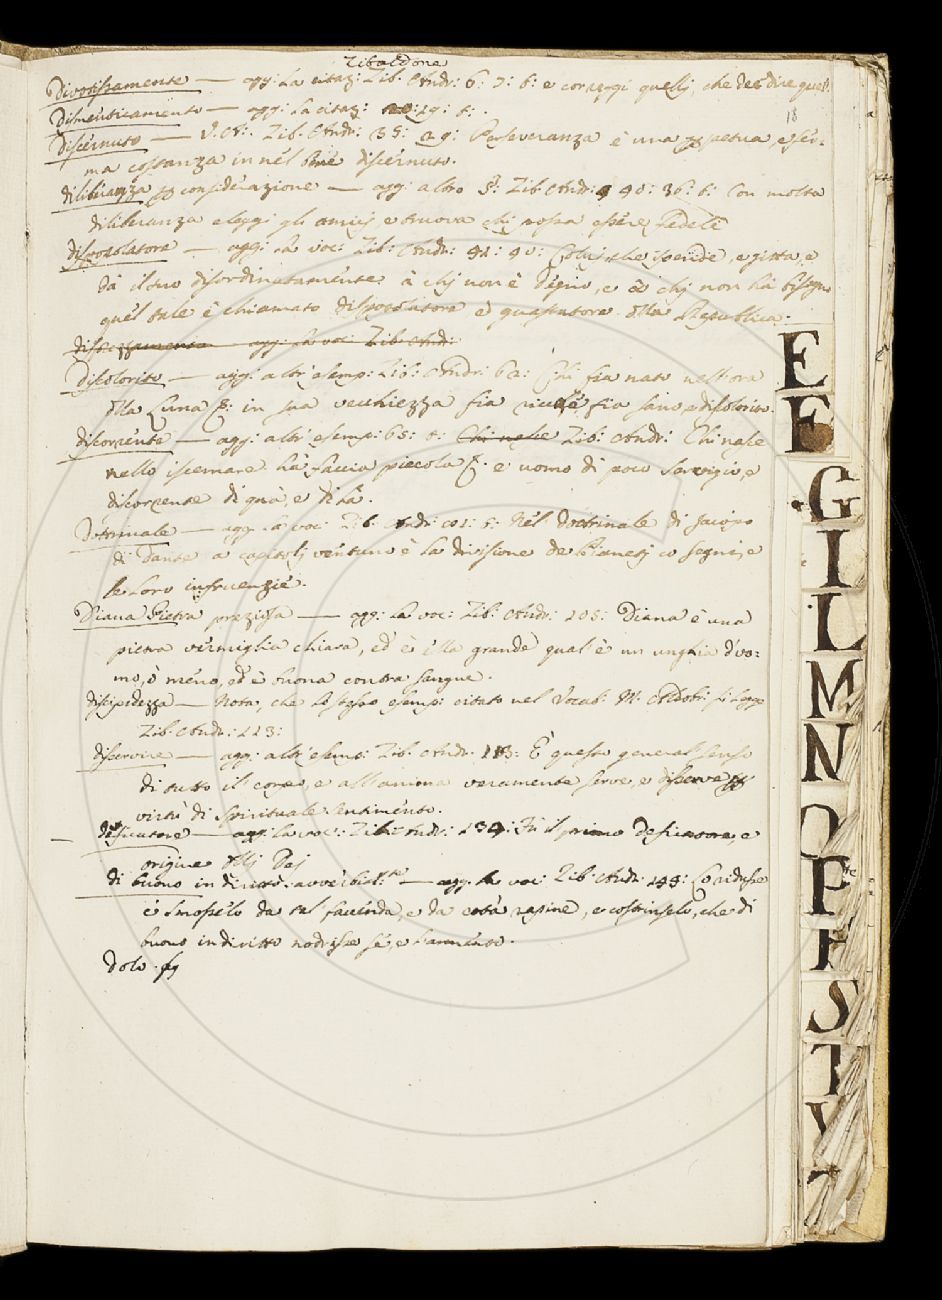 Zibaldone
Divotissamente — agg: La citaz: Zib: Andr: 6: 7: 6: e corregi quelli, che dee dire quest.
18
Dimenticamento — agg: La citaz: 29: t: .
Discernuto — V. A: Zib: Andr: 35: 29: Perseveranza è una perpetua, e fer:
ma costanza in nel bene discernuto.
diliberanza per considerazione — agg: altro Zib: Andr: 40: 36: t: Con molta
diliberanza eleggi gli amici, e truova chi possa essere fedele
dispocolatore — agg: La voc: Zib: Andr: 41: 40: Colui, che spende, e gitta, e
dà il suo disordinatamente à chi non è degno, e à chi non hà bisogno
quel tale è chiamato dispocolatore è guastatore della Republica.
disprezzamento agg: La voc: Zib: Andr:
Discolorito — agg: altri esemp: Zib: Andr: 60: Chi fia nato nell'ora
della Luna in sua vecchiezza fia fia sano, e discolorito.
discorrente — agg: altri esemp: 65: t: Chi nasce Zib: Andr: Chi nasce
nello iscemare hà faccia piccola è uomo di poco servigio, e
discorrente di quà, e di là.
Dotrinale — agg: La voc: Zib: Andr: 101: t: Nel doctrinale di Jacopo
di Dante a capitoli ventuno è la divisione de Pianeti co segni, e
le loro infruenzie.
Diana Pietra preziosa — agg: La voc: Zib: Andr: 105: Diana è una
pietra vermiglia chiara, ed è ella grande qual è un unghia d'vo:
mo, ò meno, ed è buona contra sangue.
discipidezza — Nota, che lo stesso esemp: citato nel Vocab: M: Aldobr: si legge
Zib: Andr: 113:
diservire — agg: altri esemp: Zib: Andr: 113: E questo general senso
di tutto il corpo, e all'anima veramente serve, e diserve per
virtù di spirituale sentimento.
desiccatore — agg: La voc: Zib: Andr: 134: Fu il primo desiccatore, e
origine delli Dei
di buono in diritto. avverbial:te — agg: la voc: Zib: Andr: 148:
è smosselo da tal facenda, e da cotà rapine, e costrinselo, che di
buono in diritto nodrisse sé, e l'armento.
Dolo. sg
E
F
G
I
L
M
N
O
P
R
S
T
V
Z